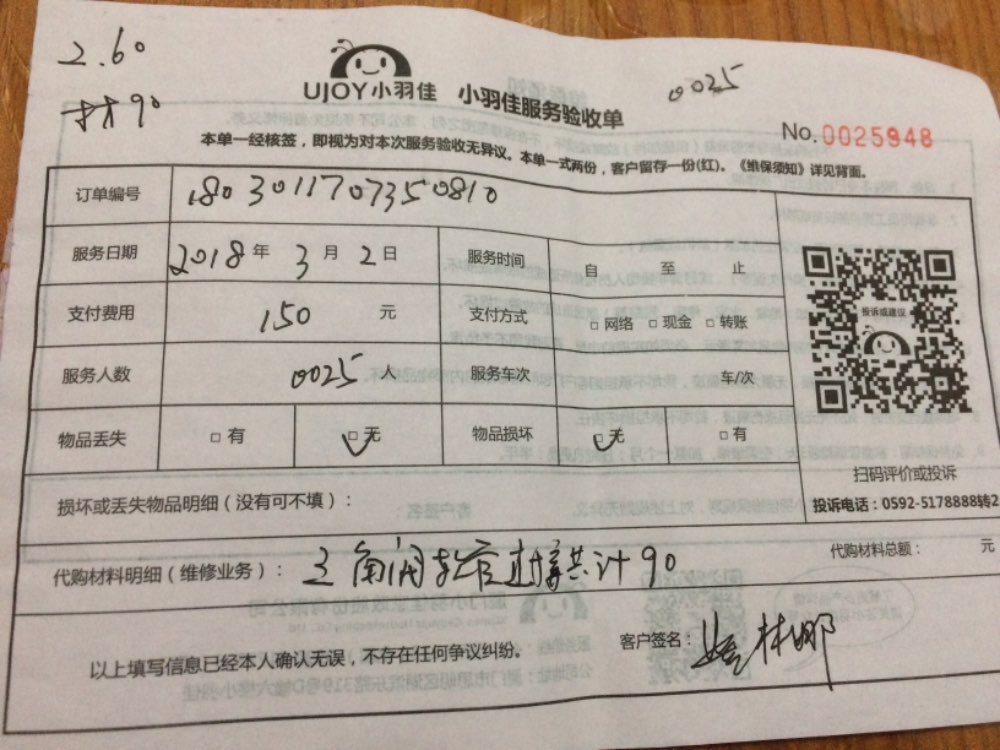 2.60
材90
UJOY小羽佳 小羽佳服务验收单
0025
No.0025948
本单一经核签，即视为对本次服务验收无异议。本单一式两份，客户留存一份(红)。《维保须知》详见背面。
订单编号 1803011707350810
服务日期 2018年3月2日 服务时间 自 至 止
支付费用 150 元 支付方式 □网络 □现金 □转账
服务人数 0025 人 服务车次 车/次
物品丢失 □有 □无 物品损坏 □无 □有
投诉或建议
扫码评价或投诉
投诉电话：0592-5178888转2
损坏或丢失物品明细（没有可不填）：
代购材料明细（维修业务）： 三角阀 共计90
代购材料总额： 元
以上填写信息已经本人确认无误，不存在任何争议纠纷。
客户签名： 林娜